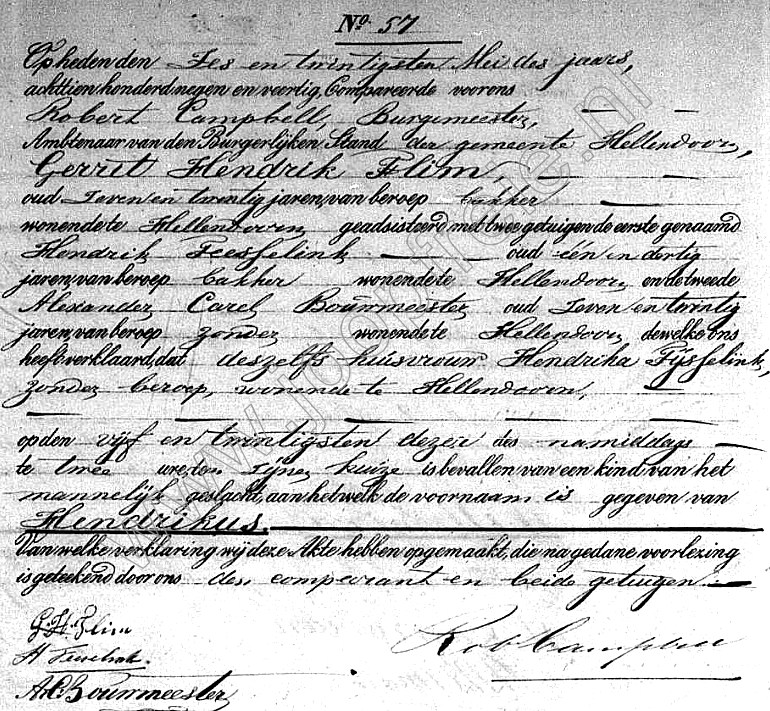 No. 57
Op heden den Zes en twintigsten Mei des jaars,
achttien honderd negen en veertig, Compareerde voor ons
Robert Campbell, Burgemeester,
Ambtenaar van den Burgerlijken Stand der gemeente Hellendoorn,
Gerrit Hendrik Flim,
oud Zeven en twintig jaren, van beroep bakker
wonende te Hellendoorn geadsisteerd met twee getuigen de eerste genaamd
Hendrik oud één en dertig
jaren, van beroep bakker wonende te Hellendoorn en de tweede
Alexander Carel Bouwmeester oud Zeven en twintig
jaren, van beroep zonder wonende te Hellendoorn dewelke ons
heeft verklaard, dat deszelfs huisvrouw Hendrika
zonder beroep, wonende te Hellendoorn,
op den vijf en twintigsten dezer des namiddags
te twee ure, ten zijnen huize is bevallen van een kind van het
mannelijk geslacht, aan hetwelk de voornaam is gegeven van
Hendrikus.
Van welke verklaring wij deze Akte hebben opgemaakt, die na gedane voorlezing
is geteekend door ons den comparant en beide getuigen
G.H. Flim
H
A.C. Bouwmeester
Rob Campbell